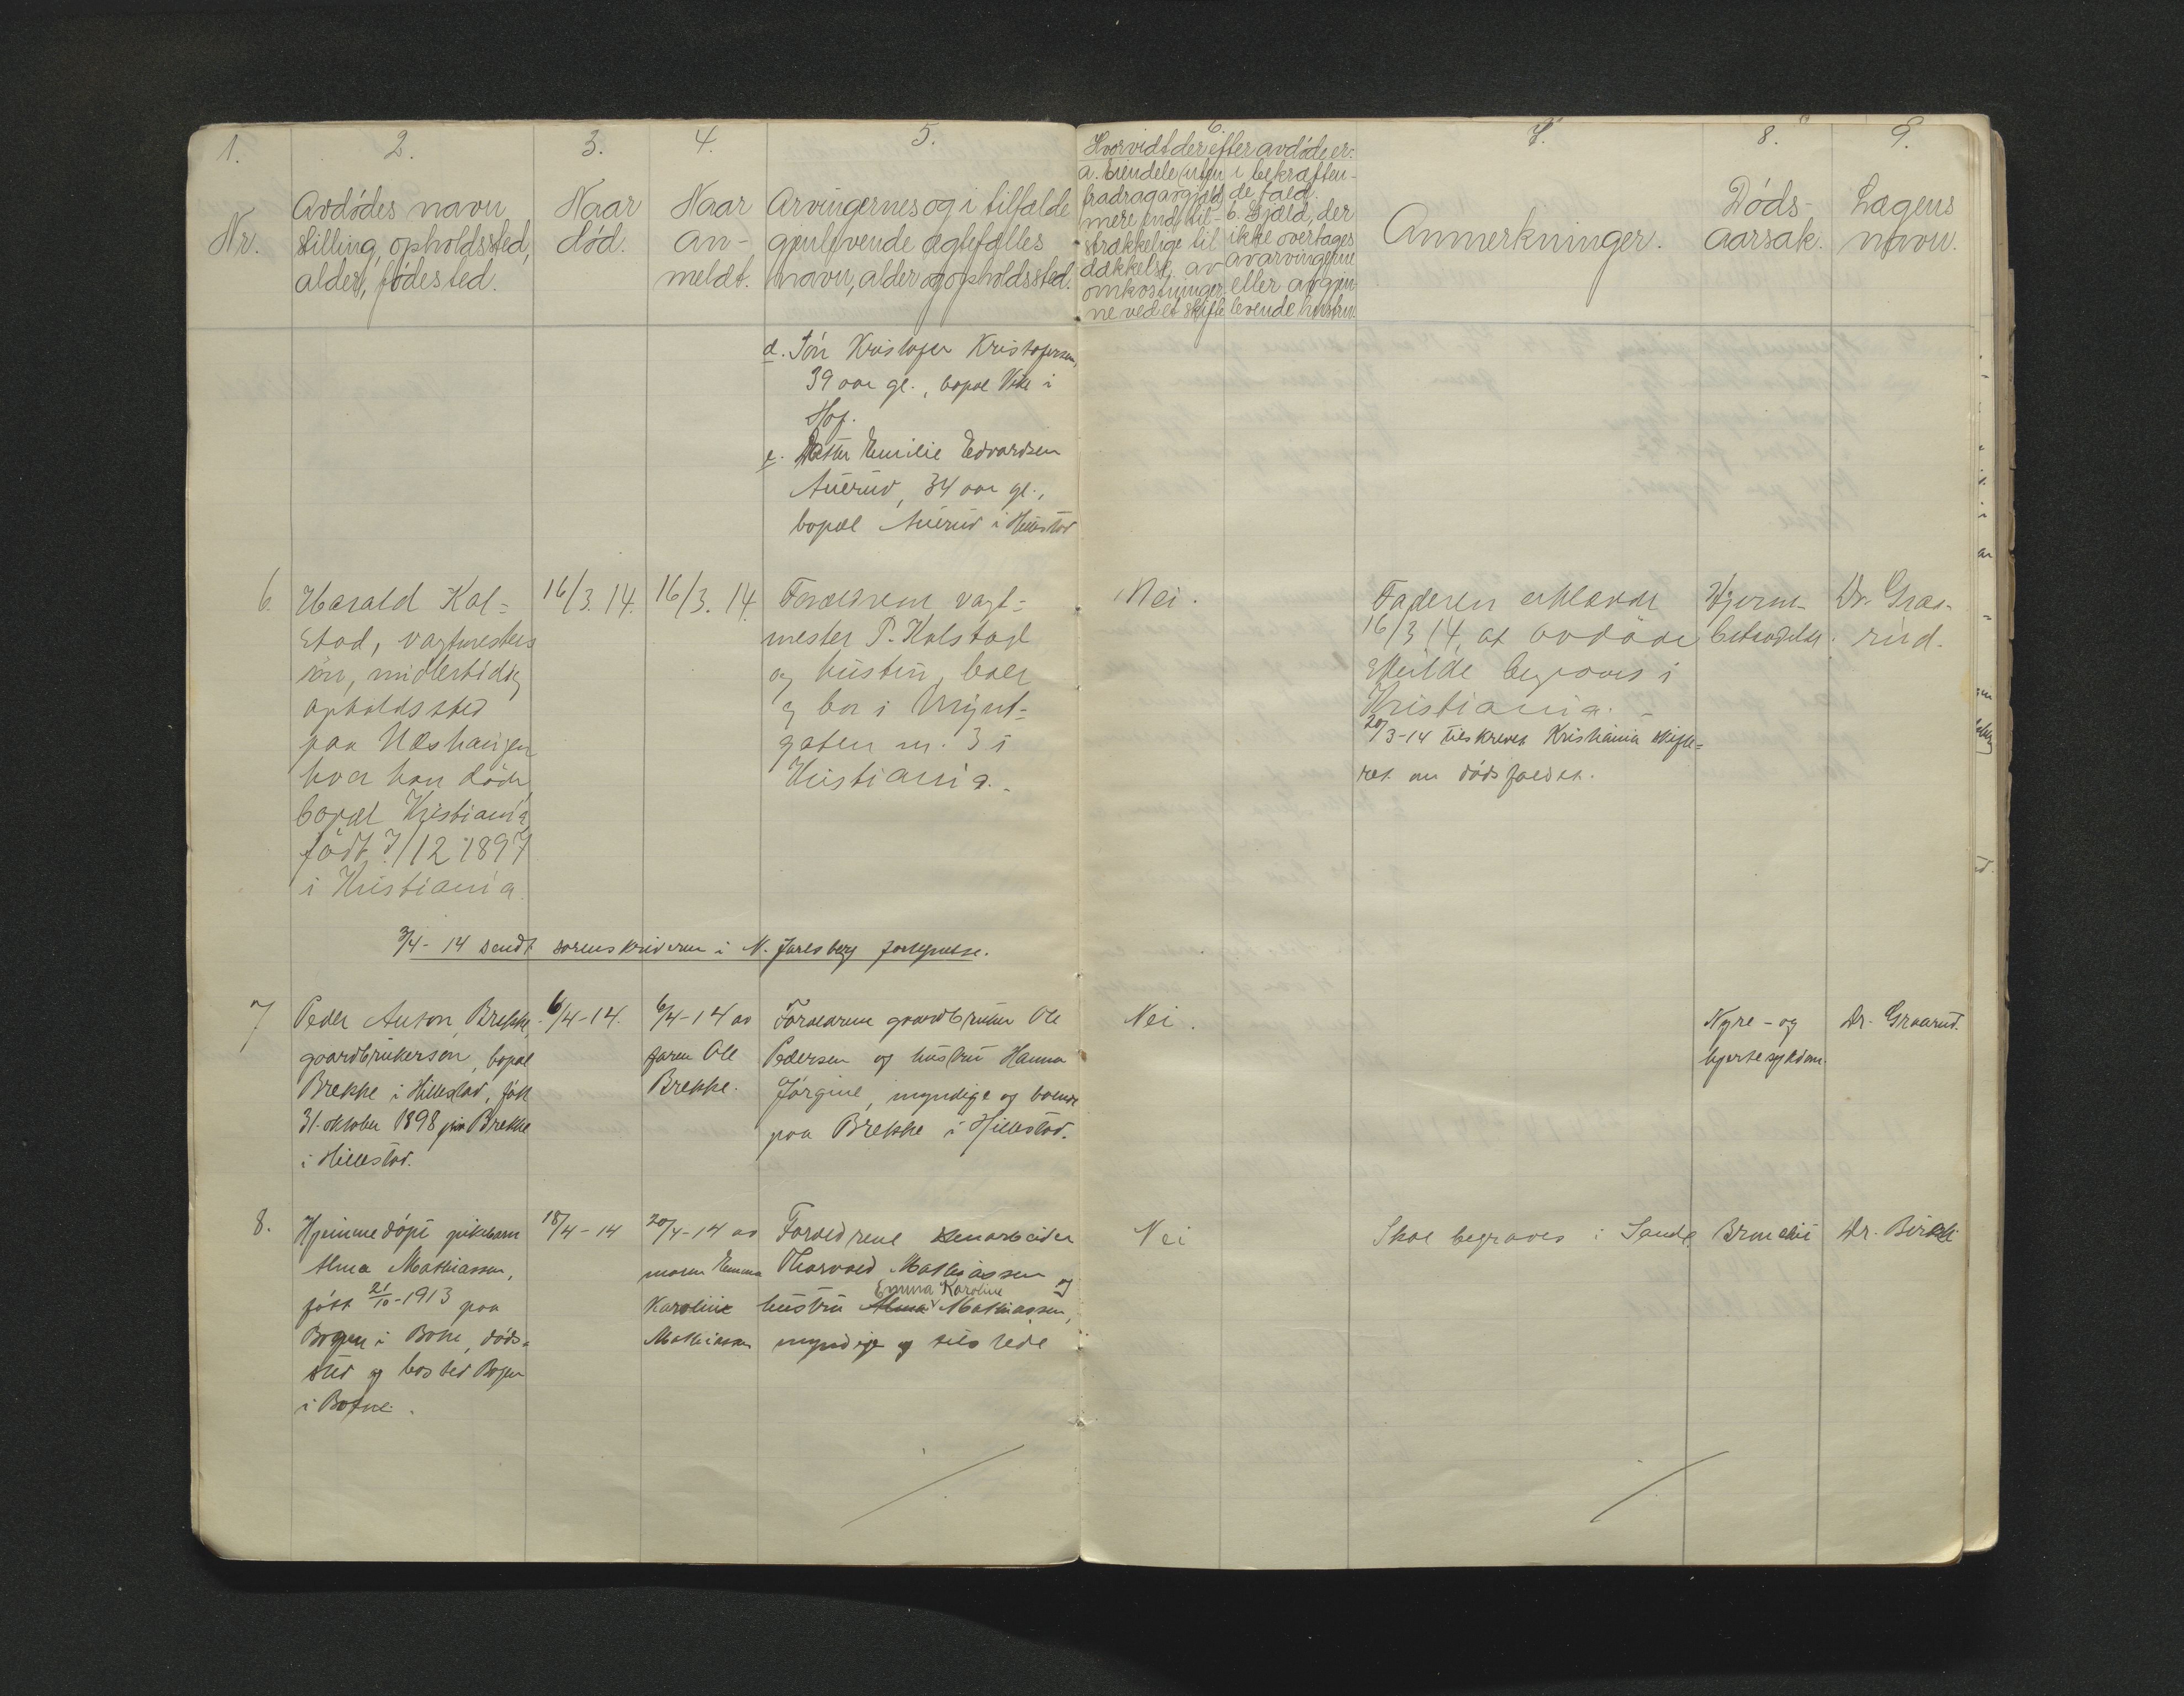 1.
2.
3.
4.
5.
6.
7.
8.
9.
Nr.
Avdødes navn
stilling, opholdssted,
alder, fødested.
Naar
død.
Naar
an-
meldt.
Arvingernes og i tilfælde
gjenlevende ægtefælles
navn, alder og opholdssted.
Hvorvidt der efter avdøde er:
a. Eiendele (uten
fradrag av gjæld)
mere end til-
strækkelige til
dækkelse av
omkostninger
ne ved et skifte
i bekræften-
de fald.
b. Gjæld, der
ikke overtages
av arvingerne
eller av gjen-
levende hustru.
Anmerkninger.
Døds-
aarsak.
Lægens
navn.
d. Søn Kristofer Kristofersen,
39 aar gl., bopæl Vike i
Hof.
e. Datter Emilie Edvardsen
Auerud, 34 aar gl.,
bopæl Auerud i Hillestad
6.
Harald Kol-
stad, vagtmesters
søn, midlertidig
opholdssted
paa Næshaugen
hvor han døde
bopæl Kristiania,
født 7/12 1897
i Kristiania.
16/3. 14.
16/3. 14
Forældrene vagt-
mester P. Kolstad
og hustru, boer
og bor i Mynt-
gaten nr. 3 i
Kristiania.
Nei.
Faderen erklærde
16/3 14, at avdøde
skulde begraves i
Kristiania.
20/3-14 tilskrevet Kristiania skifte-
ret om dødsfaldet.
Hjerne-
betændelse.
Dr. Graa-
rud.
3/4-14 sendt sorenskriveren i N. Jarlsberg fortegnelse.
7
Peder Anton Brekke,
gaardbrukersøn, bopæl
Brekke i Hillestad, født
31. oktober 1898 paa Brekke
i Hillestad.
6/4-14.
6/4-14 av
faren Ole
Brekke.
Forældrene gaardbruker Ole
Pedersen og hustru Hanna
Jørgine, myndige og boende
paa Brekke i Hillestad.
Nei.
Nyre- og
hjertesygdom.
Dr. Graarud.
8.
Hjemmedøpt pikebarn
Alma Mathiassen,
født 21/10-1913 paa
Bogen i Botne, døds-
sted og bosted Bogen
i Botne.
18/4-14
20/4-14 av
moren Emma
Karoline
Mathiassen
Forældrene stenarbeider
Thorvald Mathiassen og
Emma Karoline
hustru Alma Mathiassen,
myndige og tilstede
Nei
Skal begraves i Sande
Bronchit
Dr. Birkeli